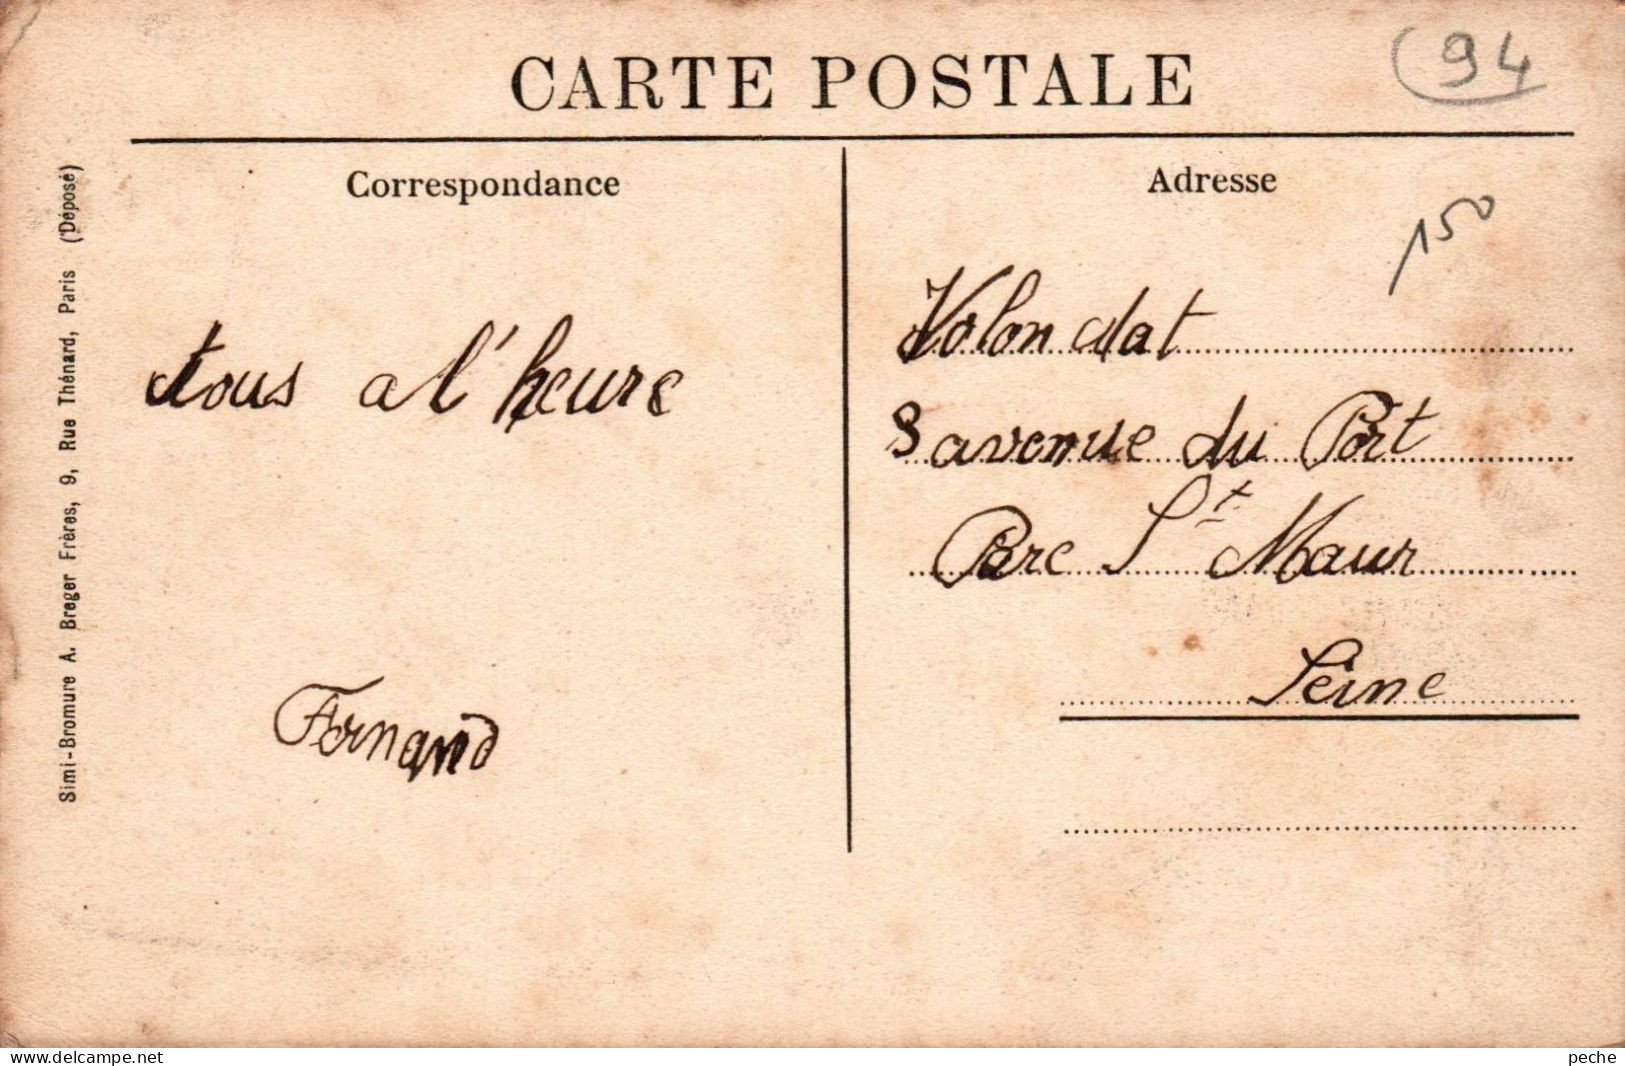 CARTE POSTALE
94
Correspondance
Adresse
150
tous a l'heure
Fernand
Volondat
8 avenue du Port
Parc St Maur
Seine
Simi-Bromure A. Breger Frères, 9, Rue Thénard, Paris (Déposé)
www.delcampe.net
peche